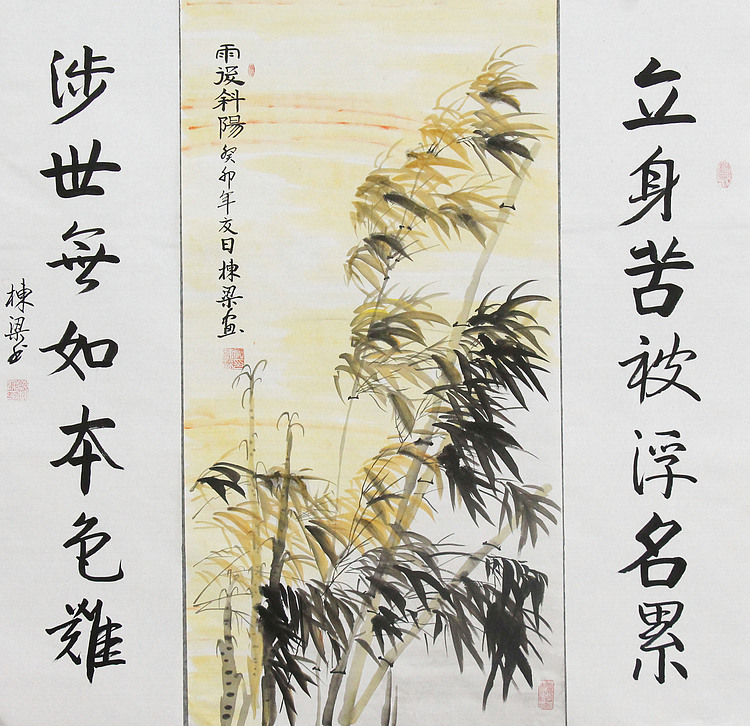 立身苦被浮名累
雨後斜陽
癸卯年交日棟梁畫
涉世無如本色難
棟梁書